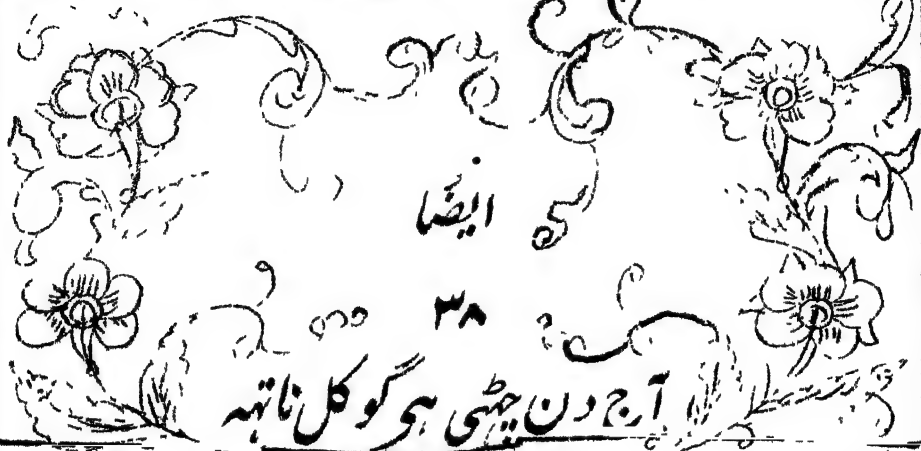 ایضًا
۳۸
آج دن چہٹی ہی گوکل ناتہہ